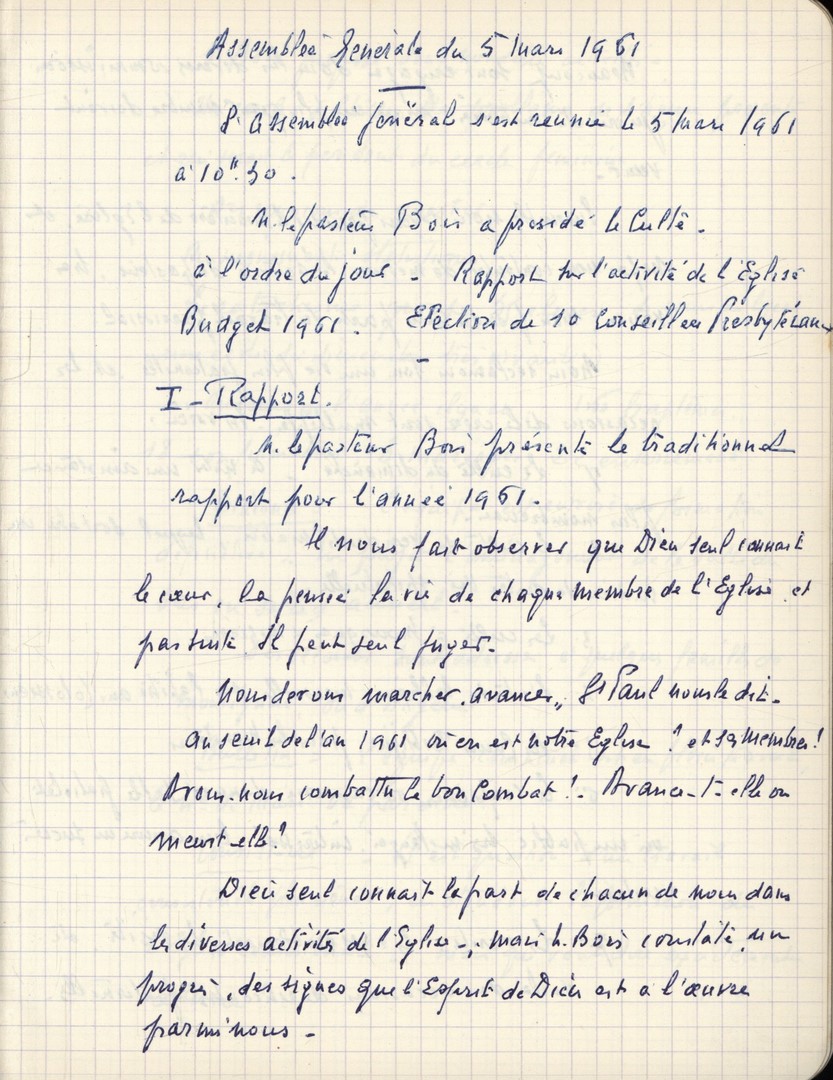 Assemblée Générale du 5 Mars 1961
L'assemblée générale s'est réunie le 5 Mars 1961
à 10h.30.
M. le pasteur Bois a présidé le Culte.
à l'ordre du jour - Rapport sur l'activité de l'Eglise
Budget 1961. Election de 10 Conseillers Presbytéraux
I - Rapport.
M. le pasteur Bois présente le traditionnel
rapport pour l'année 1961.
Il nous fait observer que Dieu seul connait
le cœur, la pensée la vie de chaque membre de l'Eglise et
par suite Il peut seul juger.
Nous devons marcher, avancer, St Paul nous le dit -
au seuil de l'an 1961 où en est notre Eglise ? et ses membres !
Avons-nous combattu le bon Combat ! - Avance-t-elle ou
meurt-elle ?
Dieu seul connait la part de chacun de nous dans
les diverses activités de l'Eglise -, mais M. Bois constate un
progrès, des signes que l'Esprit de Dieu est à l'œuvre
parmi nous -